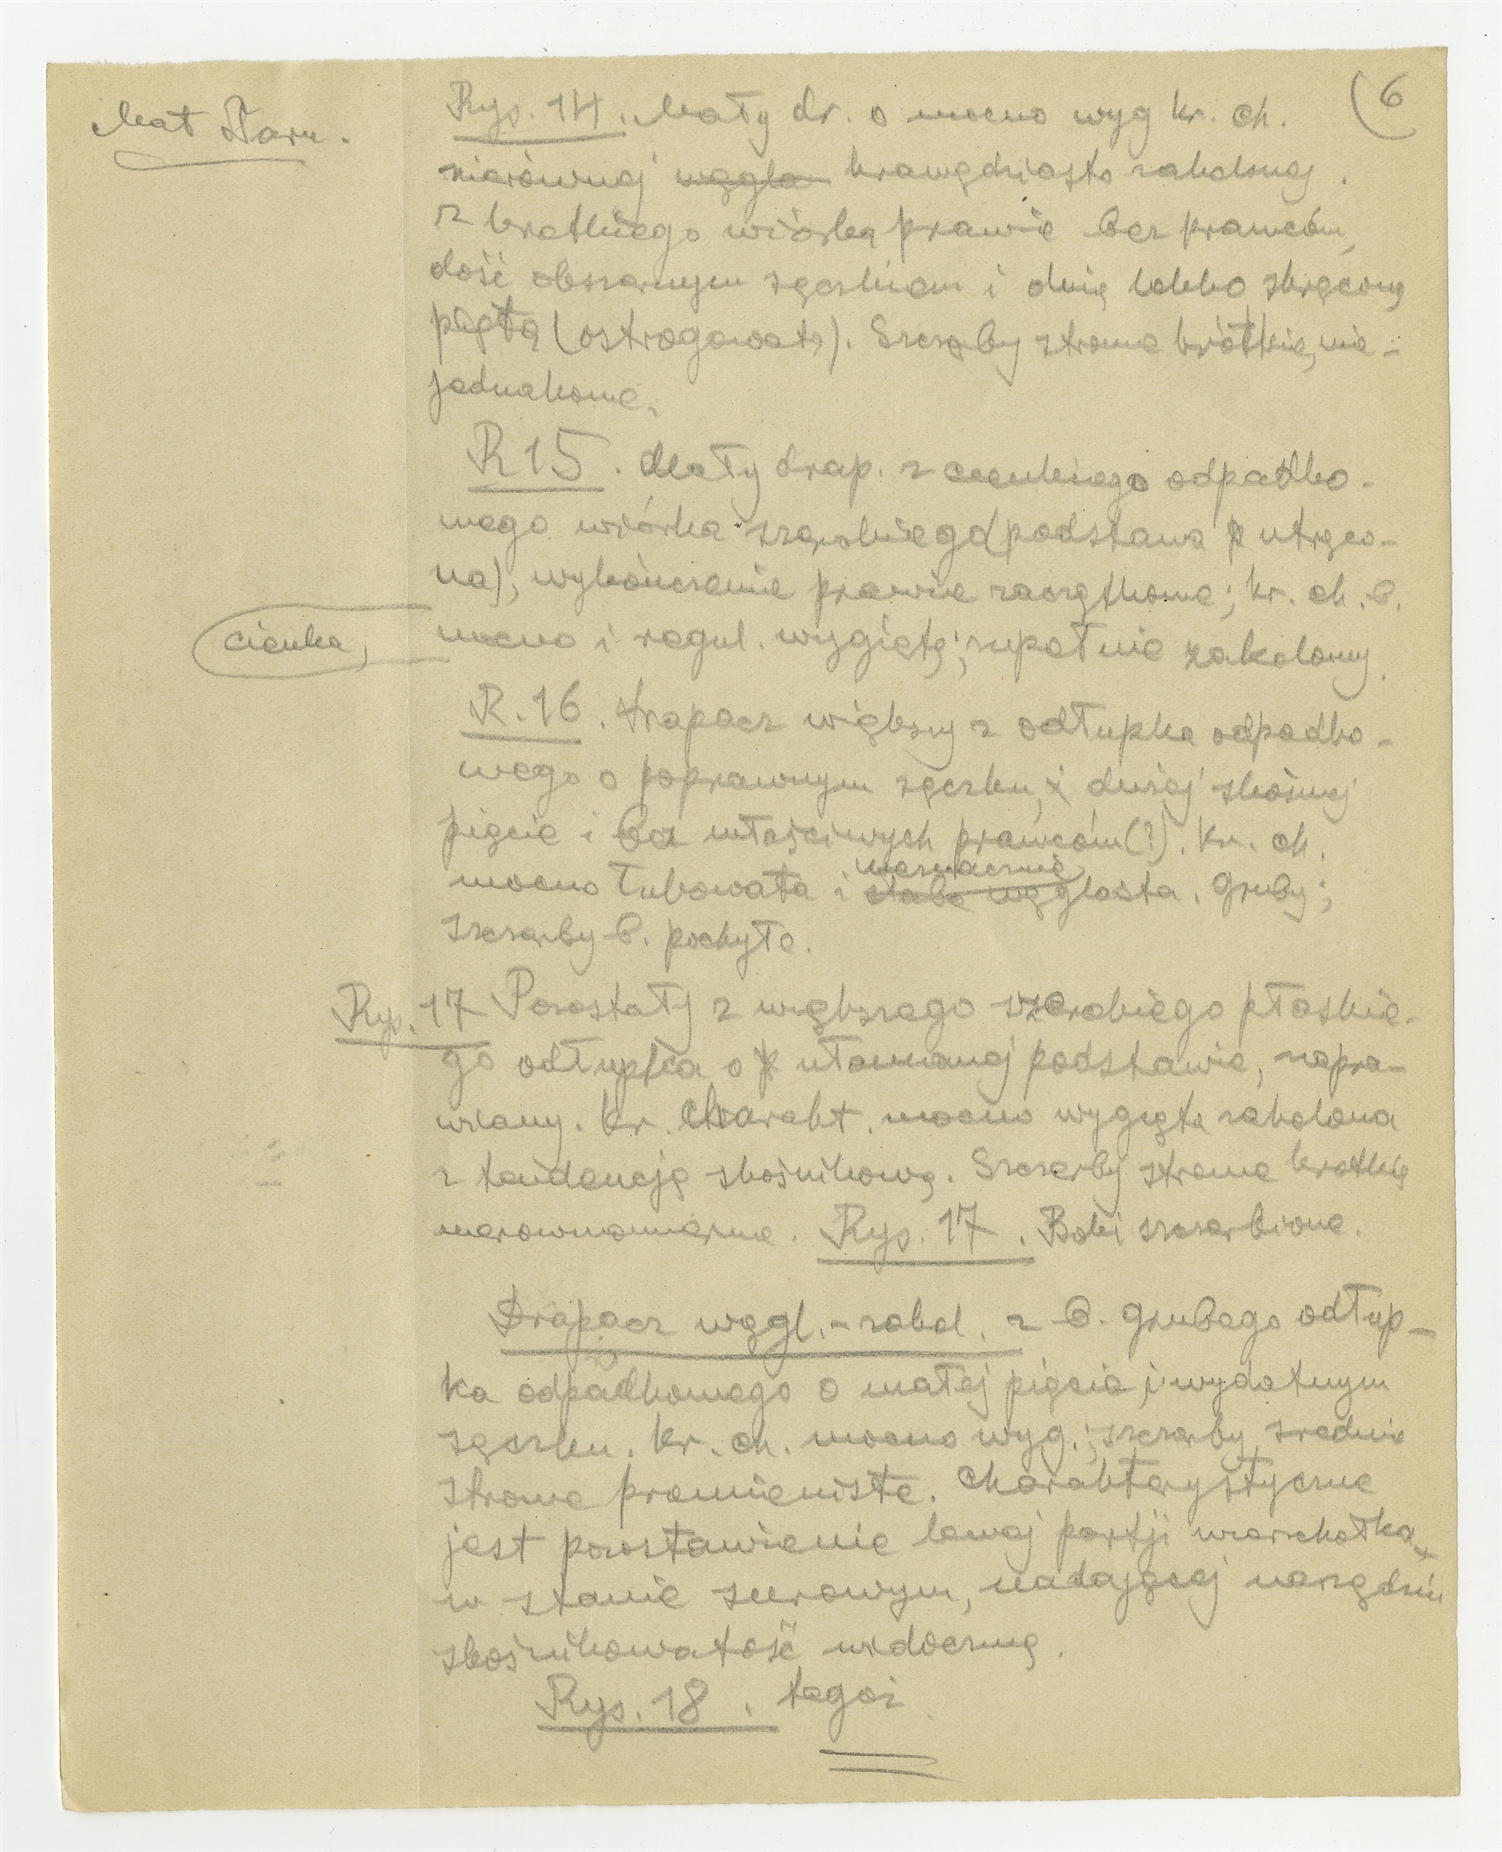 (6
Mat Tarn.
Rys. 14. Mały dr. o mocno wyg kr. ch.
nierównej węgła krawędziasto zakolonej.
z krótkiego wiórka prawie bez prawców,
dość obszernym sęczkiem i dużą lekko skręconą
piętą (ostrogowatą). Szczerby strome krótkie, nie-
jednakowe.
R 15. Mały drap. z cienkiego odpadko-
wego wiórka szerokiego (podstawa utrąco-
na), wykończenie prawie zaczątkowe; kr. ch. b.
cienka,
mocno i regul. wygięta; zupełnie zakolony.
R. 16. drapacz większy z odłupka odpadko-
wego o poprawnym sęczku, i dużej skośnej
pięcie i bez właściwych prawców(?). Kr. ch.
nieznacznie
mocno łukowata i słabo węglasta. gruby;
szczerby b. pochyłe.
Rys. 17 Pozostały z większego szerokiego płaskie-
go odłupka o ułamanej podstawie, napra-
wiany. Kr. charakt. mocno wygięta zakolona
z tendencją skośnikową. Szczerby strome krótkie
nierównomierne. Rys. 17. Boki szczerbione.
Drapacz węgl.-zakol. z b. grubego odłup-
ka odpadkowego o małej pięcie i wydatnym
sęczku. Kr. ch. mocno wyg.; szczerby średnio
strome promieniste. Charakterystyczne
jest pozostawienie lewej partji wierzchołka
w stanie surowym, nadającej narzędziu
skośnikowatość widoczną.
Rys. 18. tegoż